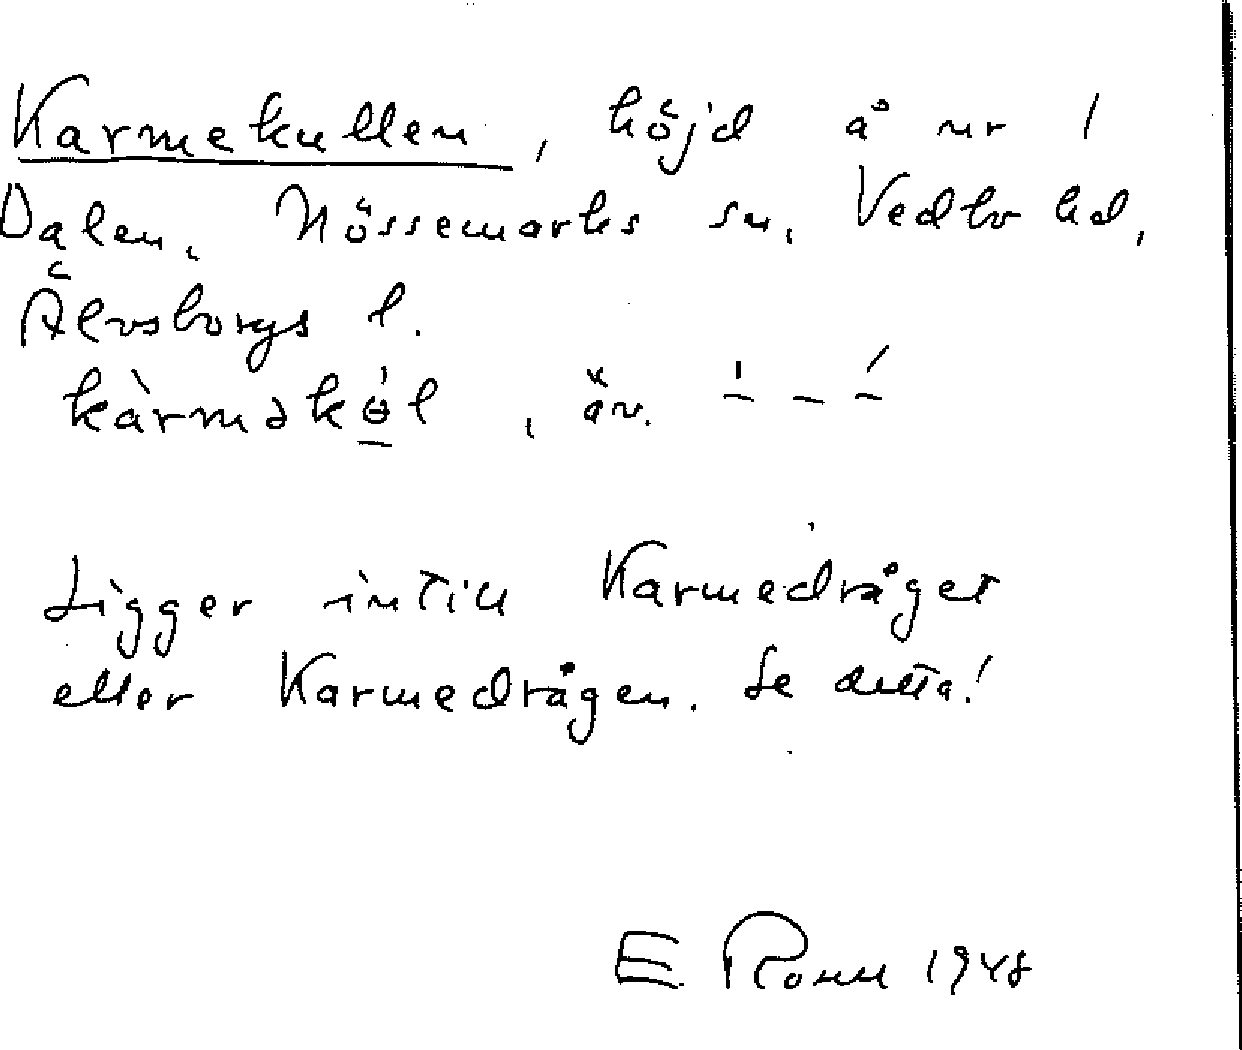 Karmekullen, höjd å nr 1
Dalen, Nössemarks sn, Vedbo hd,
Älvsborgs l.
kàrməkө́l, äv. – – –
Ligger intill Karmedråget
eller Karmedrågen. Se detta!
E. Ronn 1948